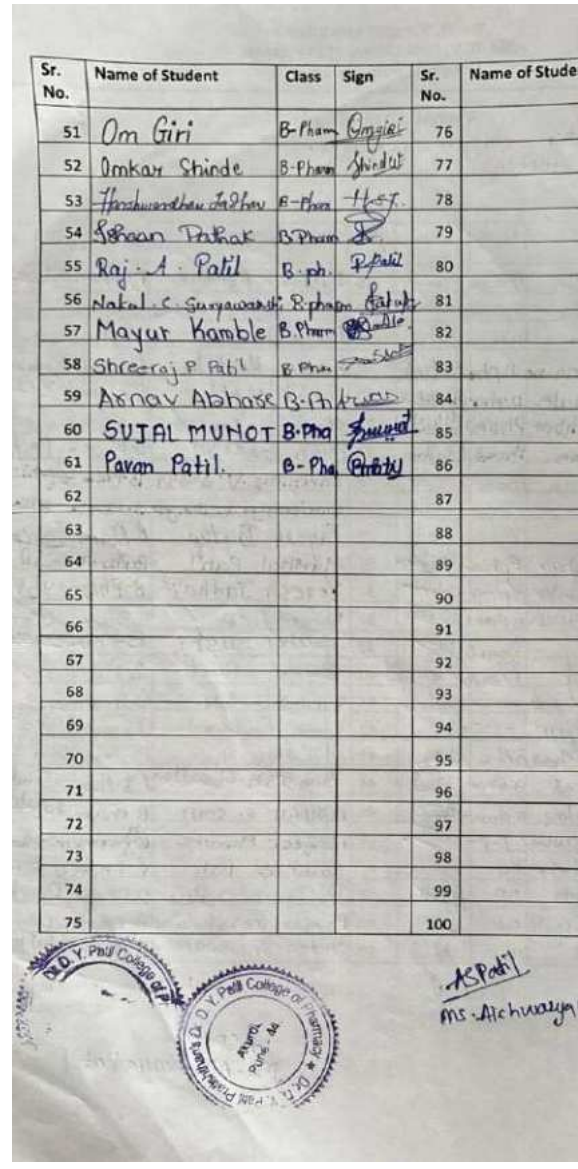 Sr. No. Name of Student Class Sign Sr. No. Name of Stude
51 Om Giri B-Pham Omgiri 76
52 Omkar Shinde B-Pharm Shinde 77
53 Harshwardhan Jadhav B-Phar 78
54 Ishaan Pathak B Pharm 79
55 Raj. A. Patil B.ph. P.Patil 80
56 Nakul. C. Suryawanshi B.pharm 81
57 Mayur Kamble B.Pharm 82
58 Shreeraj P Patil B Phar 83
59 Arnav Abhare B-Ph Arnav 84
60 SUJAL MUNOT B-Pha 85
61 Pavan Patil. B-Pha 86
62 87
63 88
64 89
65 90
66 91
67 92
68 93
69 94
70 95
71 96
72 97
73 98
74 99
75 100
Dr. D. Y. Patil College of P
Dr. D. Y. Patil Pratishthan's Dr. D. Y. Patil College of Pharmacy
Akurdi
Pune - 44
ASPatil
Ms. Aishwarya